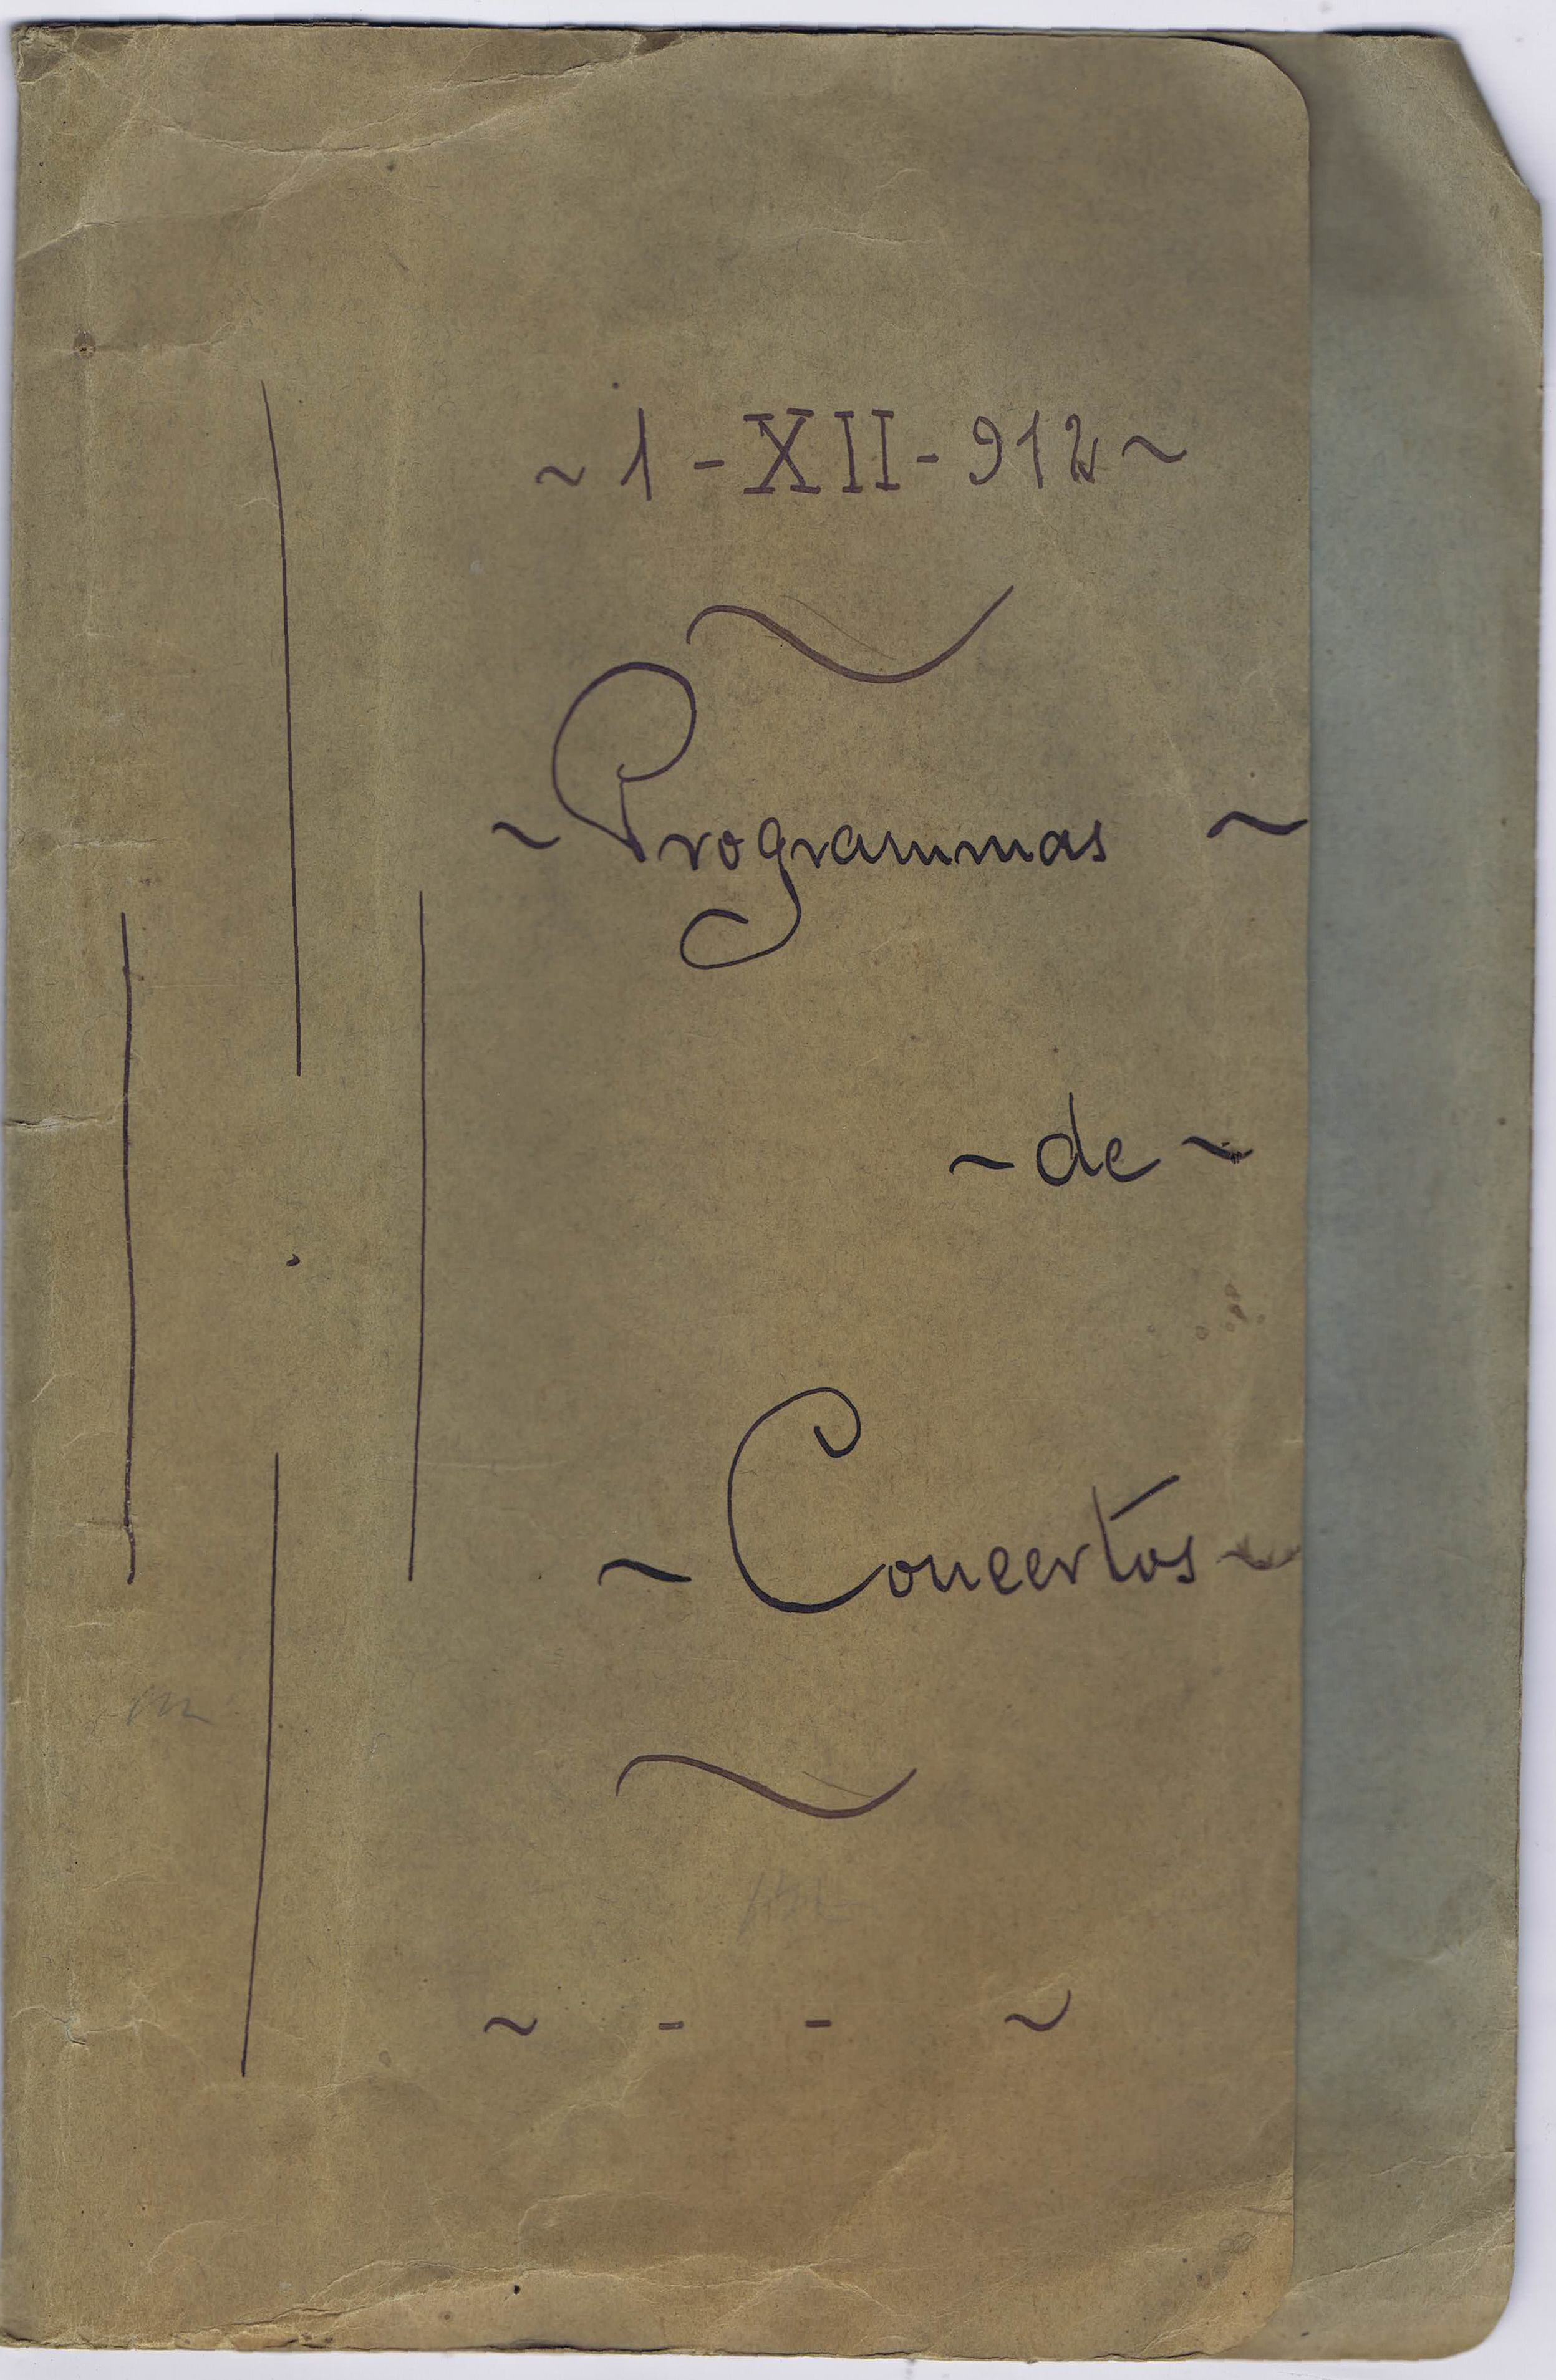 ~ 1 - XII - 912 ~
~ Programmas ~
~ de ~
~ Concertos ~